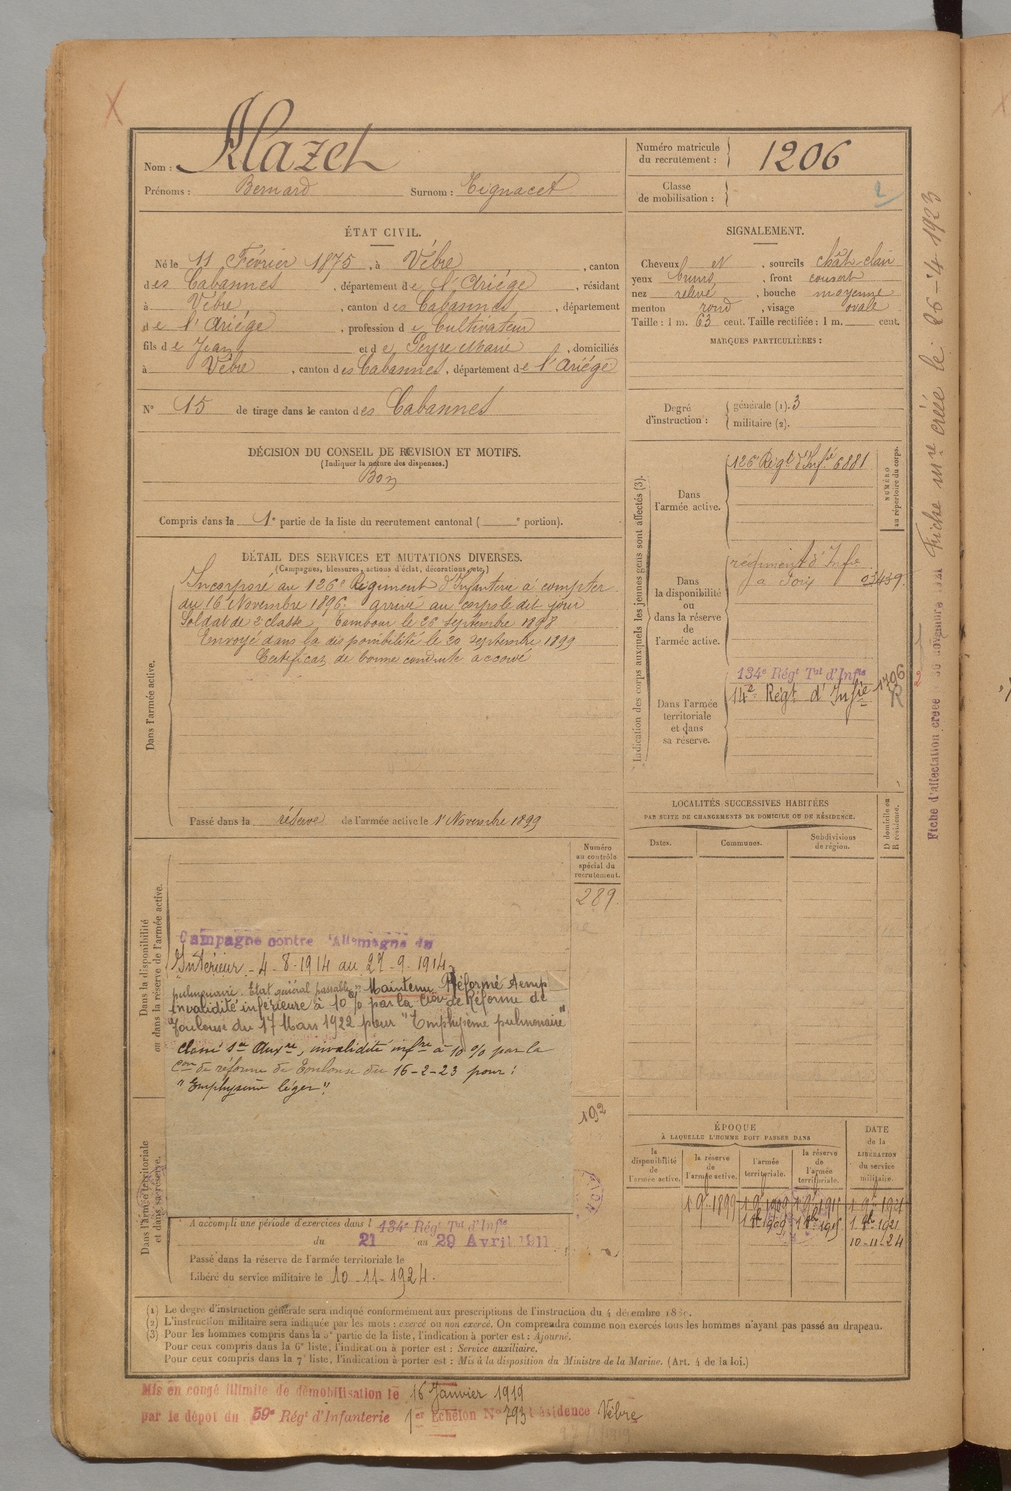 Nom : Alazet
Prénoms : Bernard Surnom : Tignacet
Numéro matricule du recrutement : 1206
Classe de mobilisation : 2
ÉTAT CIVIL.
Né le 11 Février 1875, à Vèbre, canton
des Cabannes, département de l'Ariège, résidant
à Vèbre, canton des Cabannes, département
de l'Ariège, profession de Cultivateur
fils de Jean et de Peyre Marie, domiciliés
à Vèbre, canton des Cabannes, département de l'Ariège
N° 15 de tirage dans le canton des Cabannes
SIGNALEMENT.
Cheveux N, sourcils chât clair
yeux bruns, front couvert
nez relevé, bouche moyenne
menton rond, visage ovale
Taille : 1 m. 63 cent. Taille rectifiée : 1 m. cent.
MARQUES PARTICULIÈRES :
Degré d'instruction : générale (1). 3
militaire (2).
DÉCISION DU CONSEIL DE REVISION ET MOTIFS.
(Indiquer la nature des dispenses.)
Bon
Compris dans la 1e partie de la liste du recrutement cantonal ( e portion).
DÉTAIL DES SERVICES ET MUTATIONS DIVERSES.
(Campagnes, blessures, actions d'éclat, décorations, etc.)
Dans l'armée active.
Incorporé au 126e Régiment d'Infanterie à compter
du 16 Novembre 1896. arrivé au corps le dit jour
Soldat de 2e classe, Tambour le 26 septembre 1898
Envoyé dans la disponibilité le 20 septembre 1899
Certificat de bonne conduite accordé
Passé dans la réserve de l'armée active le 1r Novembre 1899
Indication des corps auxquels les jeunes gens sont affectés (3).
NUMÉRO au répertoire du corps.
Dans l'armée active.
126e Régt d'Infie 6881
Dans la disponibilité ou dans la réserve de l'armée active.
régiment d'Infie
à Foix 03439.
Dans l'armée territoriale et dans sa réserve.
134e Régt Tal d'Infie
14e Régt d'Infie 1706
R
2
LOCALITÉS SUCCESSIVES HABITÉES
PAR SUITE DE CHANGEMENTS DE DOMICILE OU DE RÉSIDENCE.
Dates. Communes. Subdivisions de région. D domicile ou R résidence.
Dans la disponibilité ou dans la réserve de l'armée active.
Numéro au contrôle spécial du recrutement.
289
Campagne contre l'Allemagne du
Intérieur - 4-8-1914 au 27-9-1914
pulmonaire. Etat général passable. Maintenu Réformé Temp
Invalidité inférieure à 10 % par la Cion de Réforme de
Toulouse du 17 Mars 1922 pour "Emphysème pulmonaire"
Classé Sce Auxre, invalidité infre à 10 % par la
Con de réforme de Toulouse du 16-2-23 pour :
"Emphysème léger".
Dans l'armée territoriale et dans sa réserve.
192
A accompli une période d'exercices dans l 134e Régt Tal d'Infie
du 21 au 29 Avril 1911
Passé dans la réserve de l'armée territoriale le
Libéré du service militaire le 10-11-1924.
ÉPOQUE
À LAQUELLE L'HOMME DOIT PASSER DANS
la disponibilité de l'armée active. la réserve de l'armée active. l'armée territoriale. la réserve de l'armée territoriale.
DATE de la LIBÉRATION du service militaire.
1 9bre 1899 1 9bre 1909 1 9bre 1915 1 9bre 1921
1 8bre 1909 1 8bre 1915 1 8bre 1921
10-11-24
(1) Le degré d'instruction générale sera indiqué conformément aux prescriptions de l'instruction du 4 décembre
(2) L'instruction militaire sera indiquée par les mots : exercé ou non exercé. On comprendra comme non exercés tous les hommes n'ayant pas passé au drapeau.
(3) Pour les hommes compris dans la 5e partie de la liste, l'indication à porter est : Ajourné.
Pour ceux compris dans la 6e liste, l'indication à porter est : Service auxiliaire.
Pour ceux compris dans la 7e liste, l'indication à porter est : Mis à la disposition du Ministre de la Marine. (Art. 4 de la loi.)
Mis en congé illimité de démobilisation le 16 Janvier 1919
par le dépôt du 59e Régt d'Infanterie 1er Echelon N° 793 Résidence Vèbre
Fiche d'affectation créée novembre 1921 Fiche mre créée le 26-4-1923